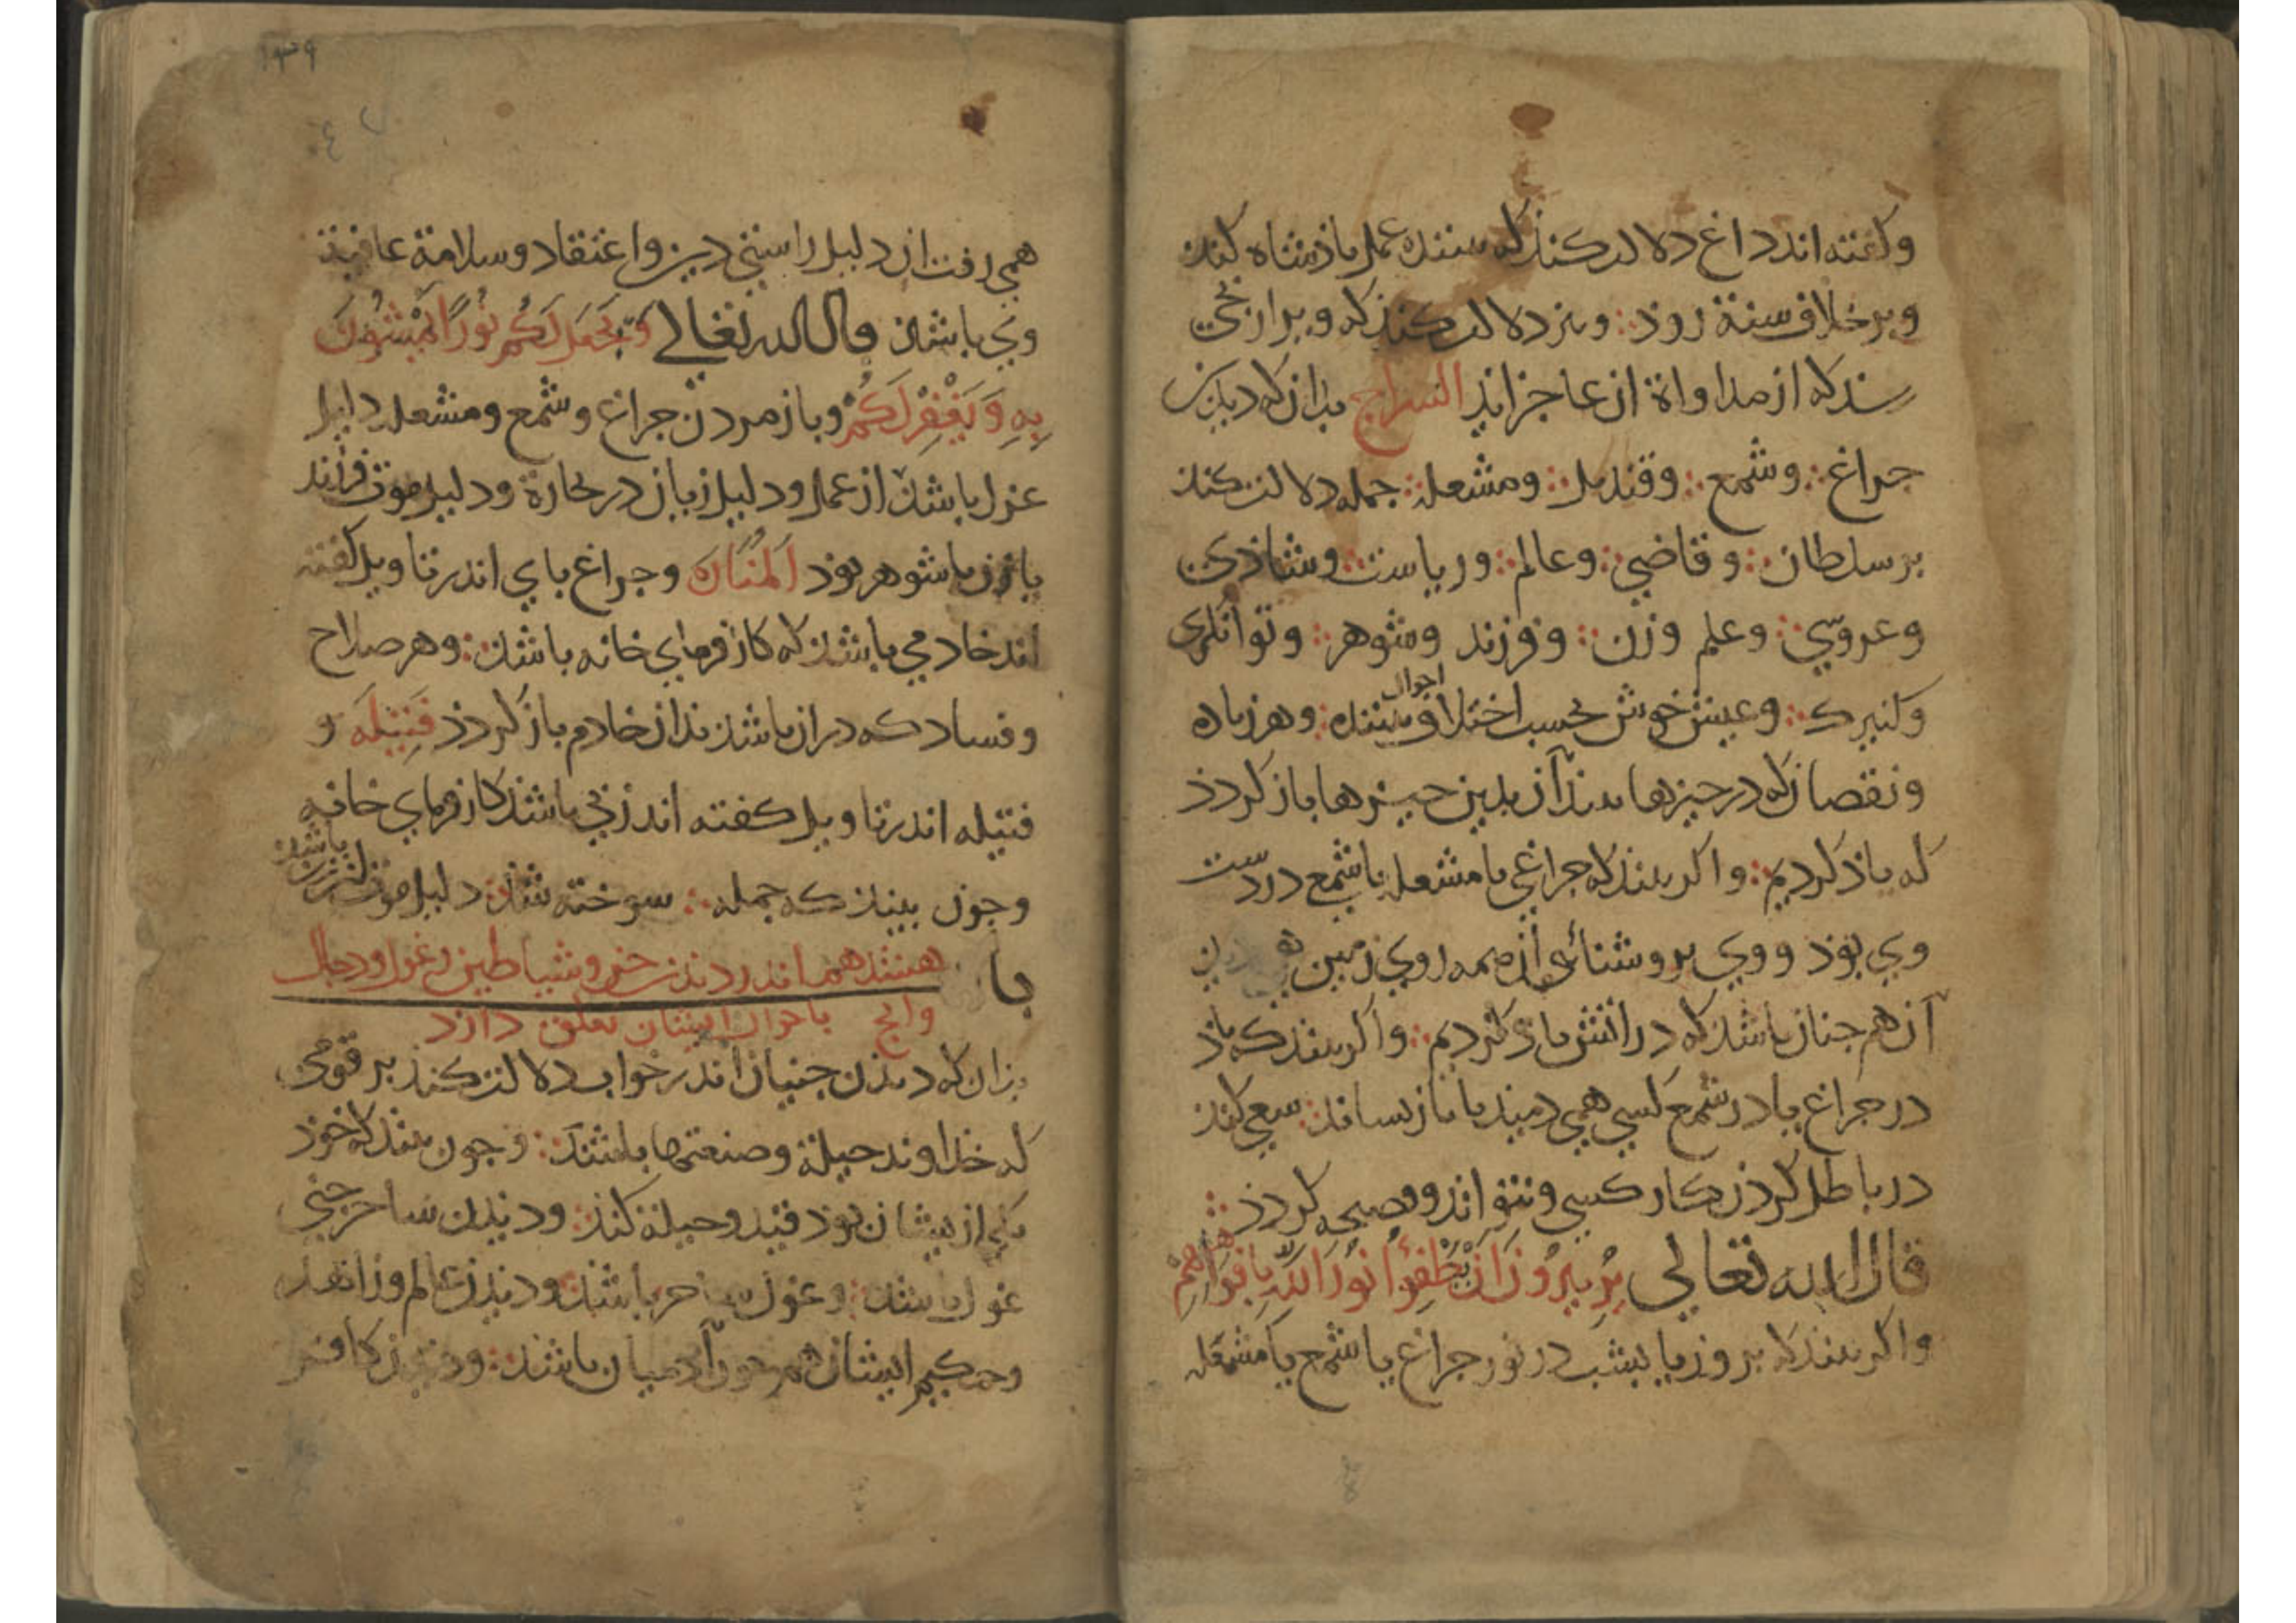 و کفته اند داغ دلالت کند که بیننده عمل پاذشاه کند
و بر خلاف سنة روذ و نیز دلالت کند که ویرا رنجی
رسد که از مداواة ان عاجز اید السراج بدان که دیدن
جراغ و شمع و قندیل و مشعله جمله دلالت کند
بر سلطان و قاضی و عالم و ریاست و شاذی
و عروسی و علم و زن و فرزند و شوهر و توانکری
و کنیزک و عیش خوش بحسب اختلاف احوال بیننده و هر زیاده
و نقصان که در جیزها بیند آن بدین جیزها باز کردذ
که یاذ کردیم و اکر بیند که جراغی یا مشعله یا شمع در دست
وی بوذ و وی بروشنائی آن همه روی زمین
آن هم جنان باشد که در اتش یاذ کردیم و اکر بیند که باذ
در جراغ یا در شمع کسی همی دمید یا باز نساند سعی کند
در باطل کردن کار کسی و نتواند و صیحه کردذ
قال الله تعالی یریدون ان یطفؤا نور الله بافواههم
و اکر بیند که بروز یا بشب در نور جراغ یا شمع یا مشعله
۱۳۹
همی رفت ان دلیل راستی دین و اعتقاد و سلامة عاقبة
وی باشد قال الله تعالی وَیَجْعَل لَکُم نُورًا تَمْشُونَ
بِهِ وَیَغْفِرْ لَکُمْ و باز مردن جراغ و شمع و مشعله دلیل
عزل باشد از عمل و دلیل زیان در تجارة و دلیل موت فرزند
یا زن یا شوهر بوذ المناره و جراغ بای اندر تاویل کفته
اند خادمی باشد که کار فرمای خانه باشد و هر صلاح
و فساد که در ان باشد بدان خادم باز کردذ فتیله و
فتیله اندر تاویل کفته اند زنی باشد کار فرمای خانه
و جون بیند که جمله سوخته شد دلیل موت ان زن باشد
باب هشتدهم اندر دیدن جن و شیاطین و غول و دجال
و انج باحوال ایشان تعلق دارد
بدان که دیدن جنیان اندر خواب دلالت کند بر قومی
که خداوند حیلة و صنعتها باشند و جون بیند که خوذ
یکی از یشان بوذ قید و حیلة کند و دیدن ساحر جنی
غول باشد و غول ساحر باشد و دیدن عالم و زاهد
و حکیم ایشان هم جون آدمیان باشد و دیدن کافر